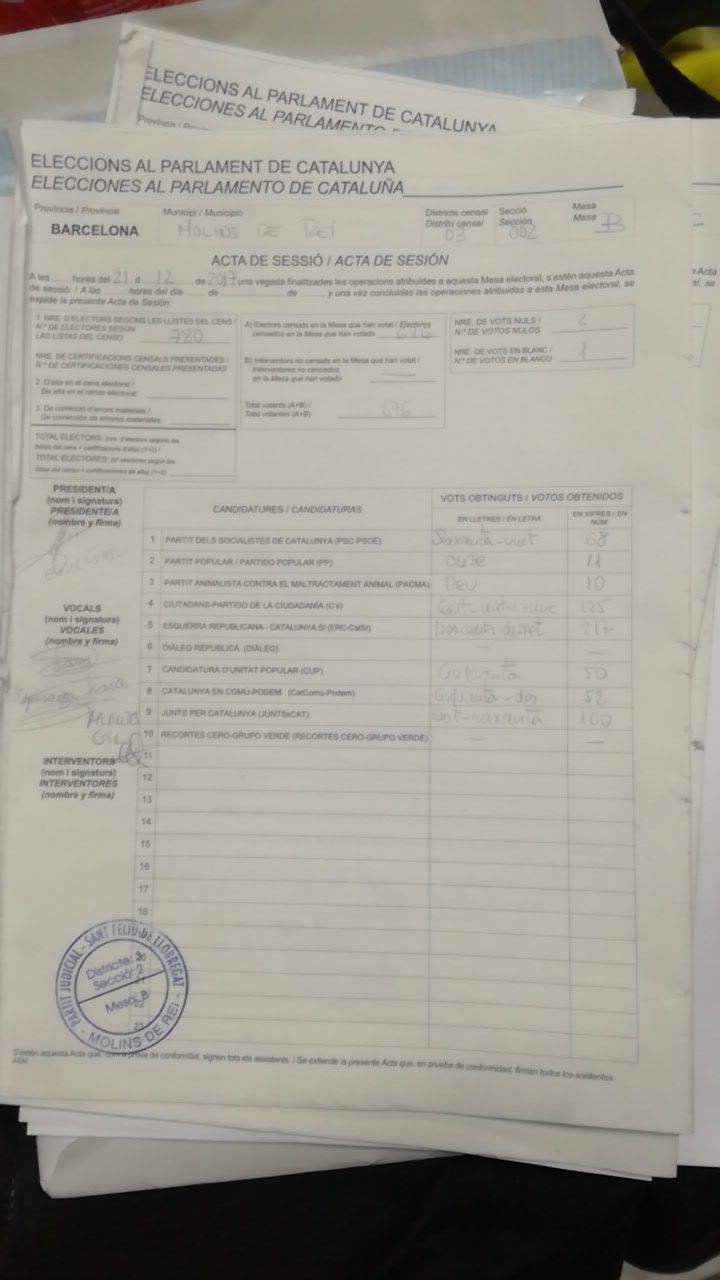 ELECCIONS AL PARLAMENT DE CATALUNYA
ELECCIONES AL PARLAMENTO DE CATALUNYA
Província / Provincia
ELECCIONS AL PARLAMENT DE CATALUNYA
ELECCIONES AL PARLAMENTO DE CATALUÑA
Província / Provincia Municipi / Municipio Districte censal Secció Mesa
Distrito censal Sección Mesa
BARCELONA MOLINS DE REI 03 002 B
ACTA DE SESSIÓ / ACTA DE SESIÓN
A les ...... hores del 21 d 12 de 2017 una vegada finalitzades les operacions atribuïdes a aquesta Mesa electoral, s'estén aquesta Acta
de sessió: / A las ...... horas del día ...... de ...... de ......, y una vez concluidas las operaciones atribuidas a esta Mesa electoral, se
expide la presente Acta de Sesión:
1. NRE. D'ELECTORS SEGONS LES LLISTES DEL CENS /
N.º DE ELECTORES SEGÚN
LAS LISTAS DEL CENSO 780
NRE. DE CERTIFICACIONS CENSALS PRESENTADES /
N.º DE CERTIFICACIONES CENSALES PRESENTADAS
2. D'alta en el cens electoral /
De alta en el censo electoral:
3. De correcció d'errors materials /
De corrección de errores materiales:
TOTAL ELECTORS: (nre. d'electors segons les
llistes del cens + certificacions d'altes) (1+2) /
TOTAL ELECTORES: (nº electores según las
listas del censo + certificaciones de alta) (1+2)
A) Electors censats en la Mesa que han votat / Electores
censados en la Mesa que han votado 696
B) Interventors no censats en la Mesa que han votat /
Interventores no censados
en la Mesa que han votado —
Total votants (A+B) /
Total votantes (A+B) 696
NRE. DE VOTS NULS /
N.º DE VOTOS NULOS 2
NRE. DE VOTS EN BLANC /
N.º DE VOTOS EN BLANCO 1
PRESIDENT/A
(nom i signatura)
PRESIDENTE/A
(nombre y firma)
VOCALS
(nom i signatura)
VOCALES
(nombre y firma)
INTERVENTORS
(nom i signatura)
INTERVENTORES
(nombre y firma)
CANDIDATURES / CANDIDATURAS VOTS OBTINGUTS / VOTOS OBTENIDOS
EN LLETRES / EN LETRA EN XIFRES / EN NÚM
1 PARTIT DELS SOCIALISTES DE CATALUNYA (PSC-PSOE) Seixanta-vuit 68
2 PARTIT POPULAR / PARTIDO POPULAR (PP) onze 11
3 PARTIT ANIMALISTA CONTRA EL MALTRACTAMENT ANIMAL (PACMA) Deu 10
4 CIUTADANS-PARTIDO DE LA CIUDADANÍA (C's) 125
5 ESQUERRA REPUBLICANA - CATALUNYA SI (ERC-CatSí) Doscents disset 217
6 DIÀLEG REPUBLICÀ (DIÀLEG) — —
7 CANDIDATURA D'UNITAT POPULAR (CUP) Cinquanta 50
8 CATALUNYA EN COMÚ-PODEM (CatComú-Podem) Cinquanta-dos 52
9 JUNTS PER CATALUNYA (JUNTSxCAT) Cent-seixanta 160
10 RECORTES CERO-GRUPO VERDE (RECORTES CERO-GRUPO VERDE) — —
11
12
13
14
15
16
17
18
20
21
22
23
PARTIT JUDICIAL - SANT FELIU DE LLOBREGAT
Districte: 3
Secció: 2
Mesa: B
- MOLINS DE REI -
S'estén aquesta Acta que, com a prova de conformitat, signen tots els assistents. / Se extiende la presente Acta que, en prueba de conformidad, firman todos los asistentes.